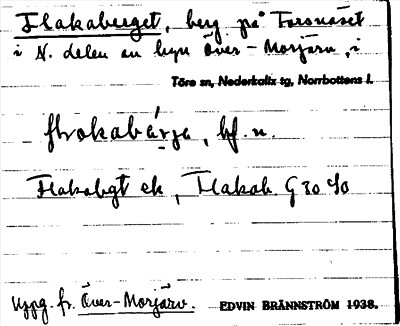 Flakaberget, berg på Forsnäset
i N. delen av byn Över-Morjärv, i
Töre sn, Nederkalix tg, Norrbottens l.
flακabärja, bf. n.
Flakabgt ek, Flakab. G 30
Uppg. fr. Över-Morjärv. EDVIN BRÄNNSTRÖM 1938.